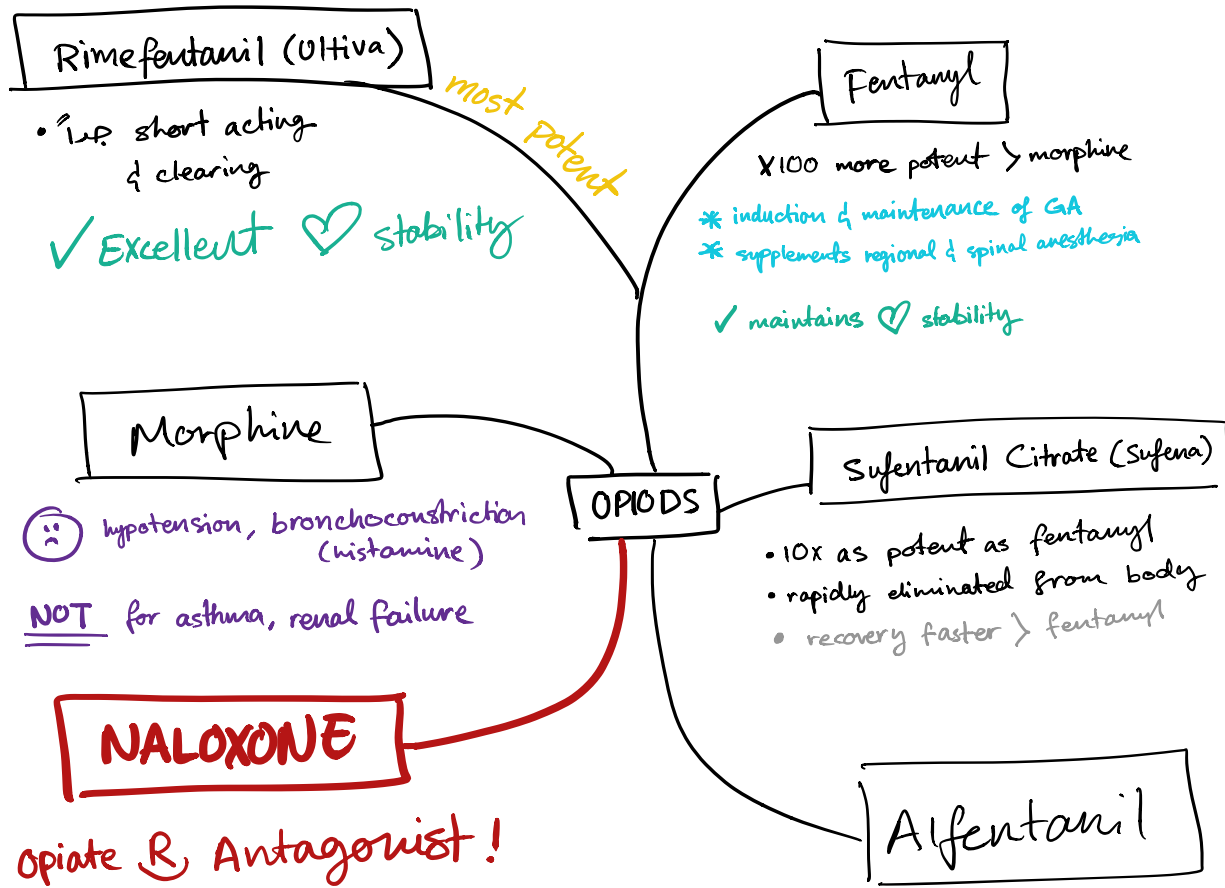 Rimefentanil (Ultiva)
most potent
• I.P. short acting
& clearing
✓ Excellent ♡ stability
Fentanyl
x100 more potent > morphine
* induction & maintenance of GA
* supplements regional & spinal anesthesia
✓ maintains ♡ stability
Morphine
☹ hypotension, bronchoconstriction
(histamine)
NOT for asthma, renal failure
OPIODS
Sufentanil Citrate (Sufena)
• 10x as potent as fentanyl
• rapidly eliminated from body
• recovery faster > fentanyl
NALOXONE
opiate R Antagonist!
Alfentanil